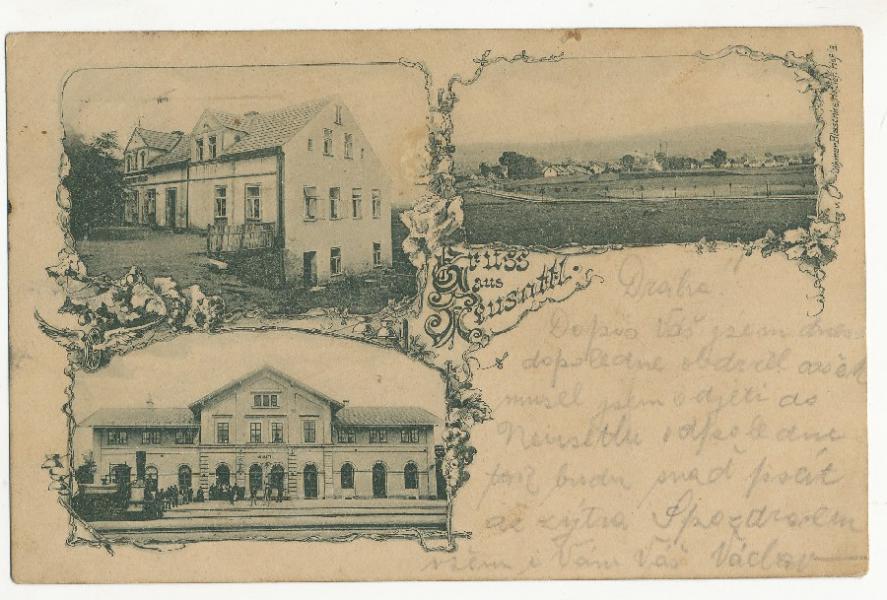 Gruss
aus
Neusattl.
Drahá
Dopis Váš jsem dnes
dopoledne obdržel avšak
musel jsem odjeti do
Neusattlu odpoledne
budu snad psát
až zýtra S pozdravem
všem i Vám Váš Václav